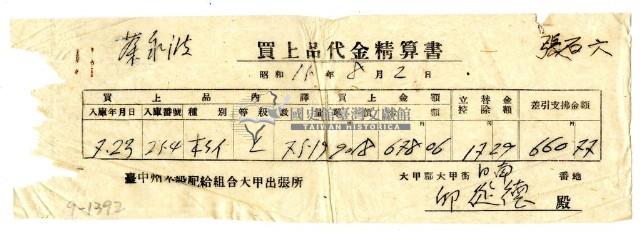 蔡永波
買上品代金精算書
張百六
昭和 16 年 8 月 2 日
買上品內譯
入庫年月日 入庫番號 種別 等級 數量 買上金額 立替控除金額 差引支拂金額
7.23 254 7519 9018 678 06 17 29 660 77
國史館臺灣文獻館
TAIWAN HISTORICA
臺中州米穀配給組合大甲出張所
大甲郡大甲街 日南 番地
邱 德 殿
9-1392